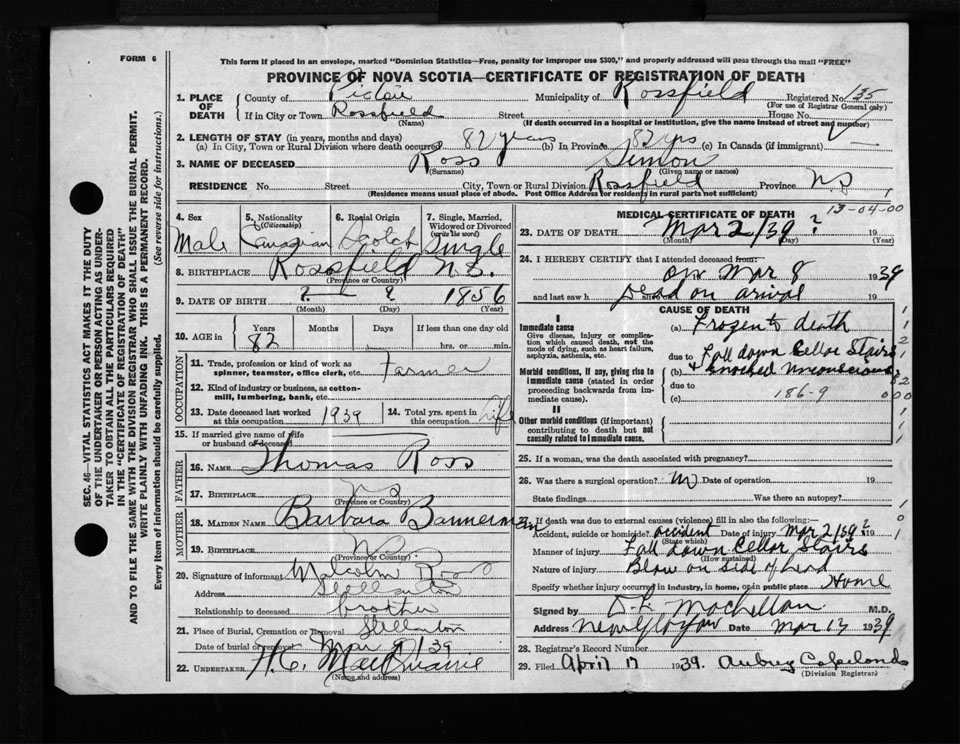 FORM 6
This form if placed in an envelope, marked "Dominion Statistics—Free, penalty for improper use $300," and properly addressed will pass through the mail "FREE"
PROVINCE OF NOVA SCOTIA—CERTIFICATE OF REGISTRATION OF DEATH
1. PLACE OF DEATH
County of Pictou Municipality of Rossfield Registered No. 135
(For use of Registrar General only)
If in City or Town Rossfield Street House No.
(Name) (If death occurred in a hospital or institution, give the name instead of street and number)
2. LENGTH OF STAY (in years, months and days)
(a) In City, Town or Rural Division where death occurred 82 years (b) In Province 82 yrs (c) In Canada (if immigrant)
3. NAME OF DECEASED Ross Simon
(Surname) (Given name or names)
RESIDENCE No. Street City, Town or Rural Division Rossfield Province N.S
(Residence means usual place of abode. Post Office Address for residents in rural parts not sufficient)
4. Sex
Male
5. Nationality
(Citizenship)
Canadian
6. Racial Origin
Scotch
7. Single, Married, Widowed or Divorced
(write the word)
Single
8. BIRTHPLACE Rossfield N.S.
(Province or Country)
9. DATE OF BIRTH ? — ? 1856
(Month) (Day) (Year)
10. AGE in
Years Months Days If less than one day old
82 hrs. or min.
OCCUPATION
11. Trade, profession or kind of work as
spinner, teamster, office clerk, etc. Farmer
12. Kind of industry or business, as cotton-
mill, lumbering, bank, etc.
13. Date deceased last worked
at this occupation 1939
14. Total yrs. spent in
this occupation Life
15. If married give name of wife
or husband of deceased
FATHER
16. NAME Thomas Ross
17. BIRTHPLACE N.S
(Province or Country)
MOTHER
18. MAIDEN NAME Barbara Bannerman
19. BIRTHPLACE N.S
(Province or Country)
20. Signature of informant Malcolm Ross
Address Stellarton
Relationship to deceased brother
21. Place of Burial, Cremation or Removal Stellarton
Date of burial or removal Mar 9/39
22. UNDERTAKER H.C. MacQuarrie
(Name and address)
MEDICAL CERTIFICATE OF DEATH
13-04-00
23. DATE OF DEATH Mar 2/39 ? 19
(Month) (Day) (Year)
24. I HEREBY CERTIFY that I attended deceased from:
on Mar 8 1939
and last saw h Dead on arival 19
CAUSE OF DEATH
I
Immediate cause
Give disease, injury or complication which caused death, not the mode of dying, such as heart failure, asphyxia, asthenia, etc.
(a) Frozen to death
due to Fall down Cellar Stairs
Morbid conditions, if any, giving rise to immediate cause (stated in order proceeding backwards from immediate cause).
(b) & knocked unconscious
due to
(c) 186-9
II
Other morbid conditions (if important) contributing to death but not causally related to immediate cause.
25. If a woman, was the death associated with pregnancy?
26. Was there a surgical operation? Date of operation 19
State findings Was there an autopsy?
If death was due to external causes (violence) fill in also the following:
Accident, suicide or homicide? accident Date of injury Mar 2/39 ? 19
(State which)
Manner of injury Fall down Cellar Stairs
(How sustained)
Nature of injury Blow on side of head
Specify whether injury occurred in industry, in home, or in public place Home
Signed by MacLellan M.D.
Address New Glasgow Date Mar 13 1939
28. Registrar's Record Number
29. Filed April 17 1939. Aubrey Copeland
(Division Registrar)
SEC. 46—VITAL STATISTICS ACT MAKES IT THE DUTY
OF THE UNDERTAKER OR PERSON ACTING AS UNDER-
TAKER TO OBTAIN ALL THE PARTICULARS REQUIRED
IN THE "CERTIFICATE OF REGISTRATION OF DEATH"
AND TO FILE THE SAME WITH THE DIVISION REGISTRAR WHO SHALL ISSUE THE BURIAL PERMIT.
WRITE PLAINLY WITH UNFADING INK. THIS IS A PERMANENT RECORD.
Every item of information should be carefully supplied. (See reverse side for instructions.)